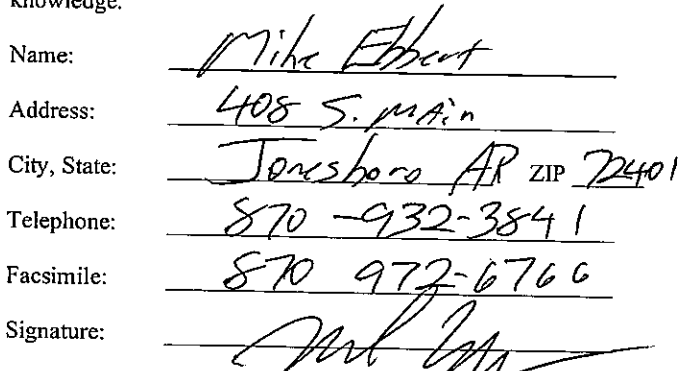 knowledge.
Name: Mike Ebbert
Address: 408 S. MAin
City, State: Jonesboro AR ZIP 72401
Telephone: 870 -932-3841
Facsimile: 870 972-6766
Signature: